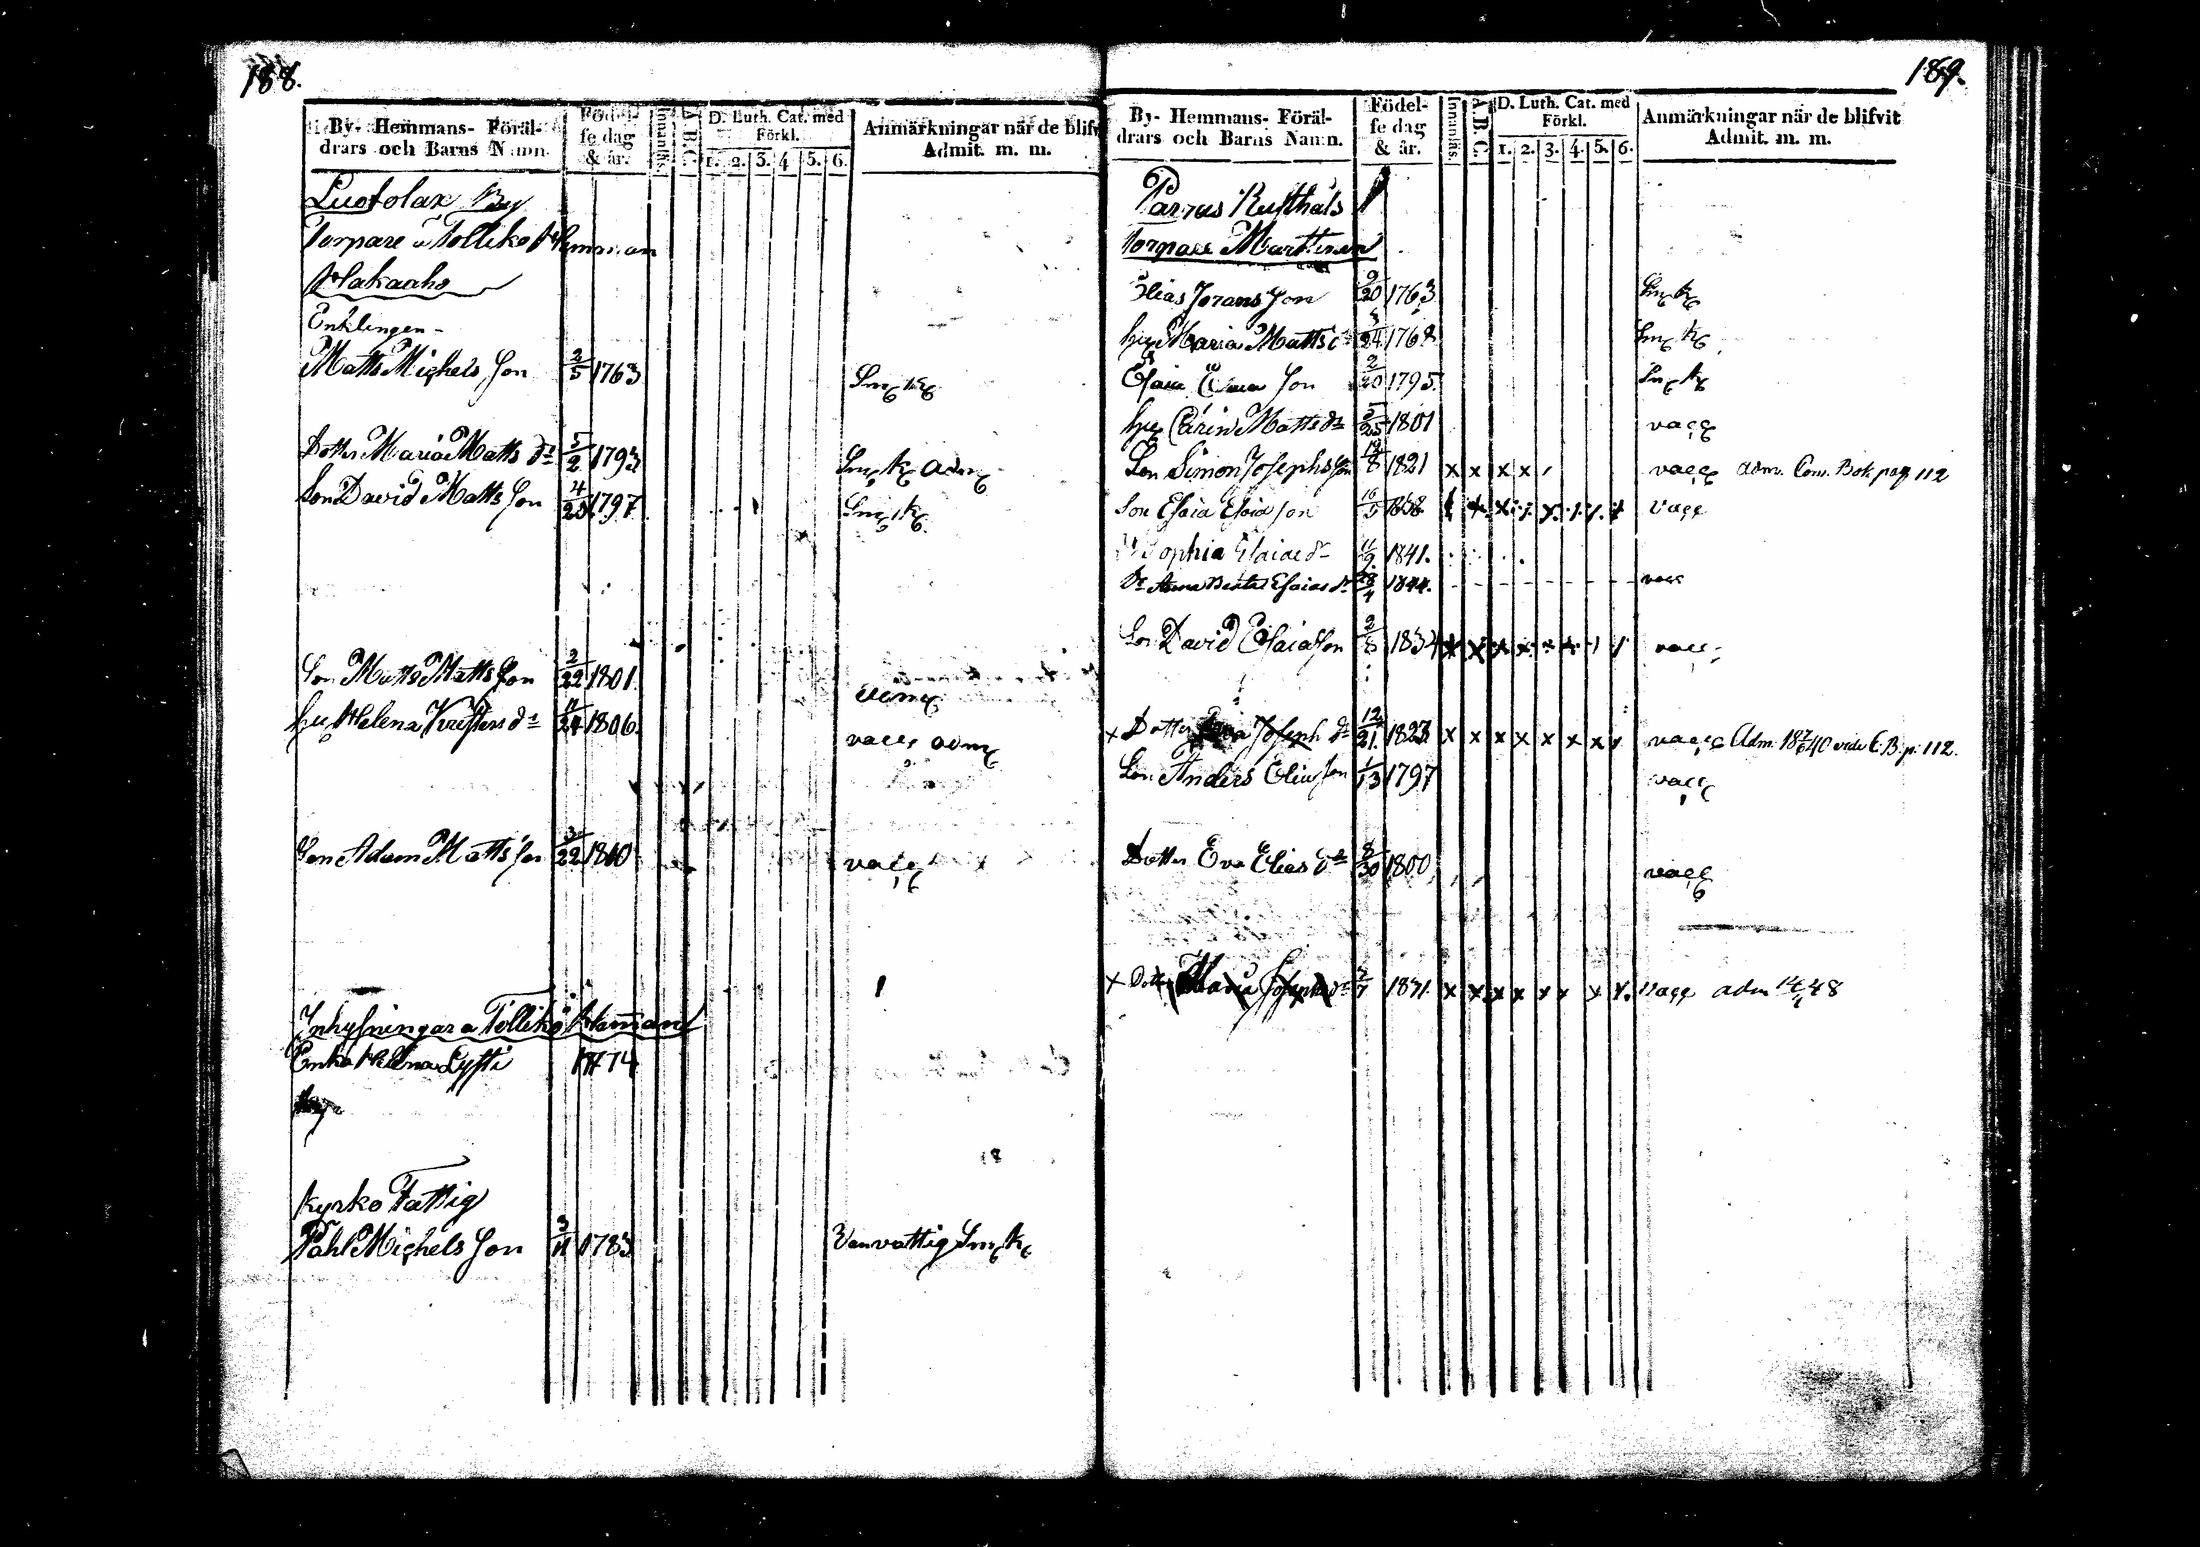 188.
By- Hemmans- Föräl-
drars och Barns Namn.
Födel-
se dag
& år.
Innanläs.
A. B. C.
D. Luth. Cat. med
Förkl.
1. 2. 3. 4 5. 6.
Anmärkningar när de blifv
Admit. m. m.
Luotolax By
Torpare Tolliko Hemman
Hakaaho
Enklingen
Matts Michels Son 2/5 1763 Sm K
Dotter Maria Matts dr 5/2 1793 Sm K adm
Son David Matts Son 4/23 1797 Sm K
Son Matts Matts Son 2/22 1801
hu Helena Kristers dr 24 1806 vacc adm
Son Adam Matts Son 3/22 1810 vacc
Inhysningar a Tolliko Hemman
Enka Helena Lyfti 1774
Kyrko Fattig
Pahl Michels Son 3/11 1783 Vanvattig Sm K
189.
By- Hemmans- Föräl-
drars och Barns Namn.
Födel-
se dag
& år.
Innanläs.
A. B. C.
D. Luth. Cat. med
Förkl.
1. 2. 3. 4. 5. 6.
Anmärkningar när de blifvit
Admit. m. m.
Parrus Rusthåls
Torpare Marttinen
Elias Jorans Son 9/20 1763 Sm K
hu Maria Matts dr 24 1768 Sm K
Esaia Elias Son 2/20 1795 Sm K
hu Carin Matts dr 5/25 1801 vacc
Son Simon Josephs Son 12/8 1821 x x x x vacc adm. Com. Bok pag 112
Son Esaia Esaia Son 16/5 1838 vacc
Sophia Esaiae dr 11/9 1841.
Dr Anna Beata Esaias dr 1844. vacc
Son David Esaia Son 2/8 1834 vacc
x Dotter Eva Joseph dr 12/21 1823 x x x x x x x vacc Adm. 1840 vide C.B. p. 112.
Son Anders Elias Son 1/13 1797 vacc
Dotter Eva Elias dr 8/30 1800 vacc
x Dotter Maria Josephs dr 1831 x x x x x x x x vacc adm 48